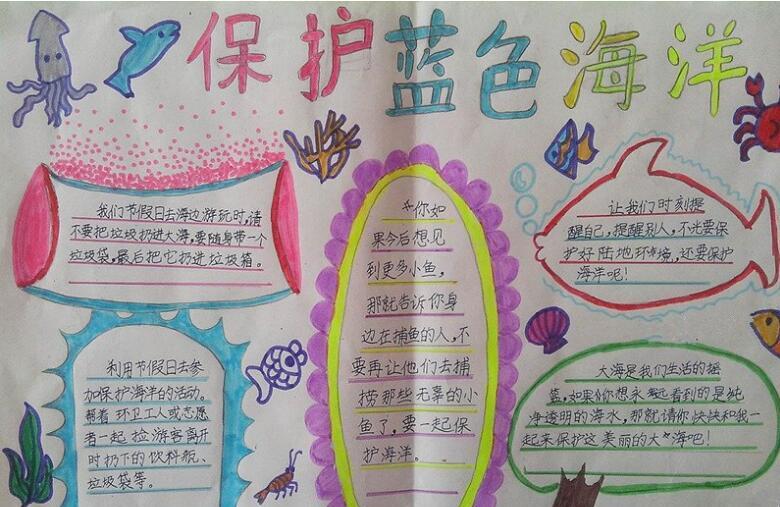 保护蓝色海洋
我们节假日去海边游玩时,请
不要把垃圾扔进大海,要随身带一个
垃圾袋,最后把它扔进垃圾箱。
利用节假日去参
加保护海洋的活动。
帮着环卫工人或志愿
者一起捡游客离开
时扔下的饮料瓶、
垃圾袋等。
你如
果今后想见
到更多小鱼,
那就告诉你身
边在捕鱼的人,不
要再让他们去捕
捞那些无辜的小
鱼了,要一起保
护海洋。
让我们时刻提
醒自己,提醒别人,不光要保
护好陆地环境,还要保护
海洋呢!
大海是我们生活的摇
蓝,如果你想永远看到的是纯
净透明的海水,那就请你快快和我一
起来保护这美丽的大海吧!